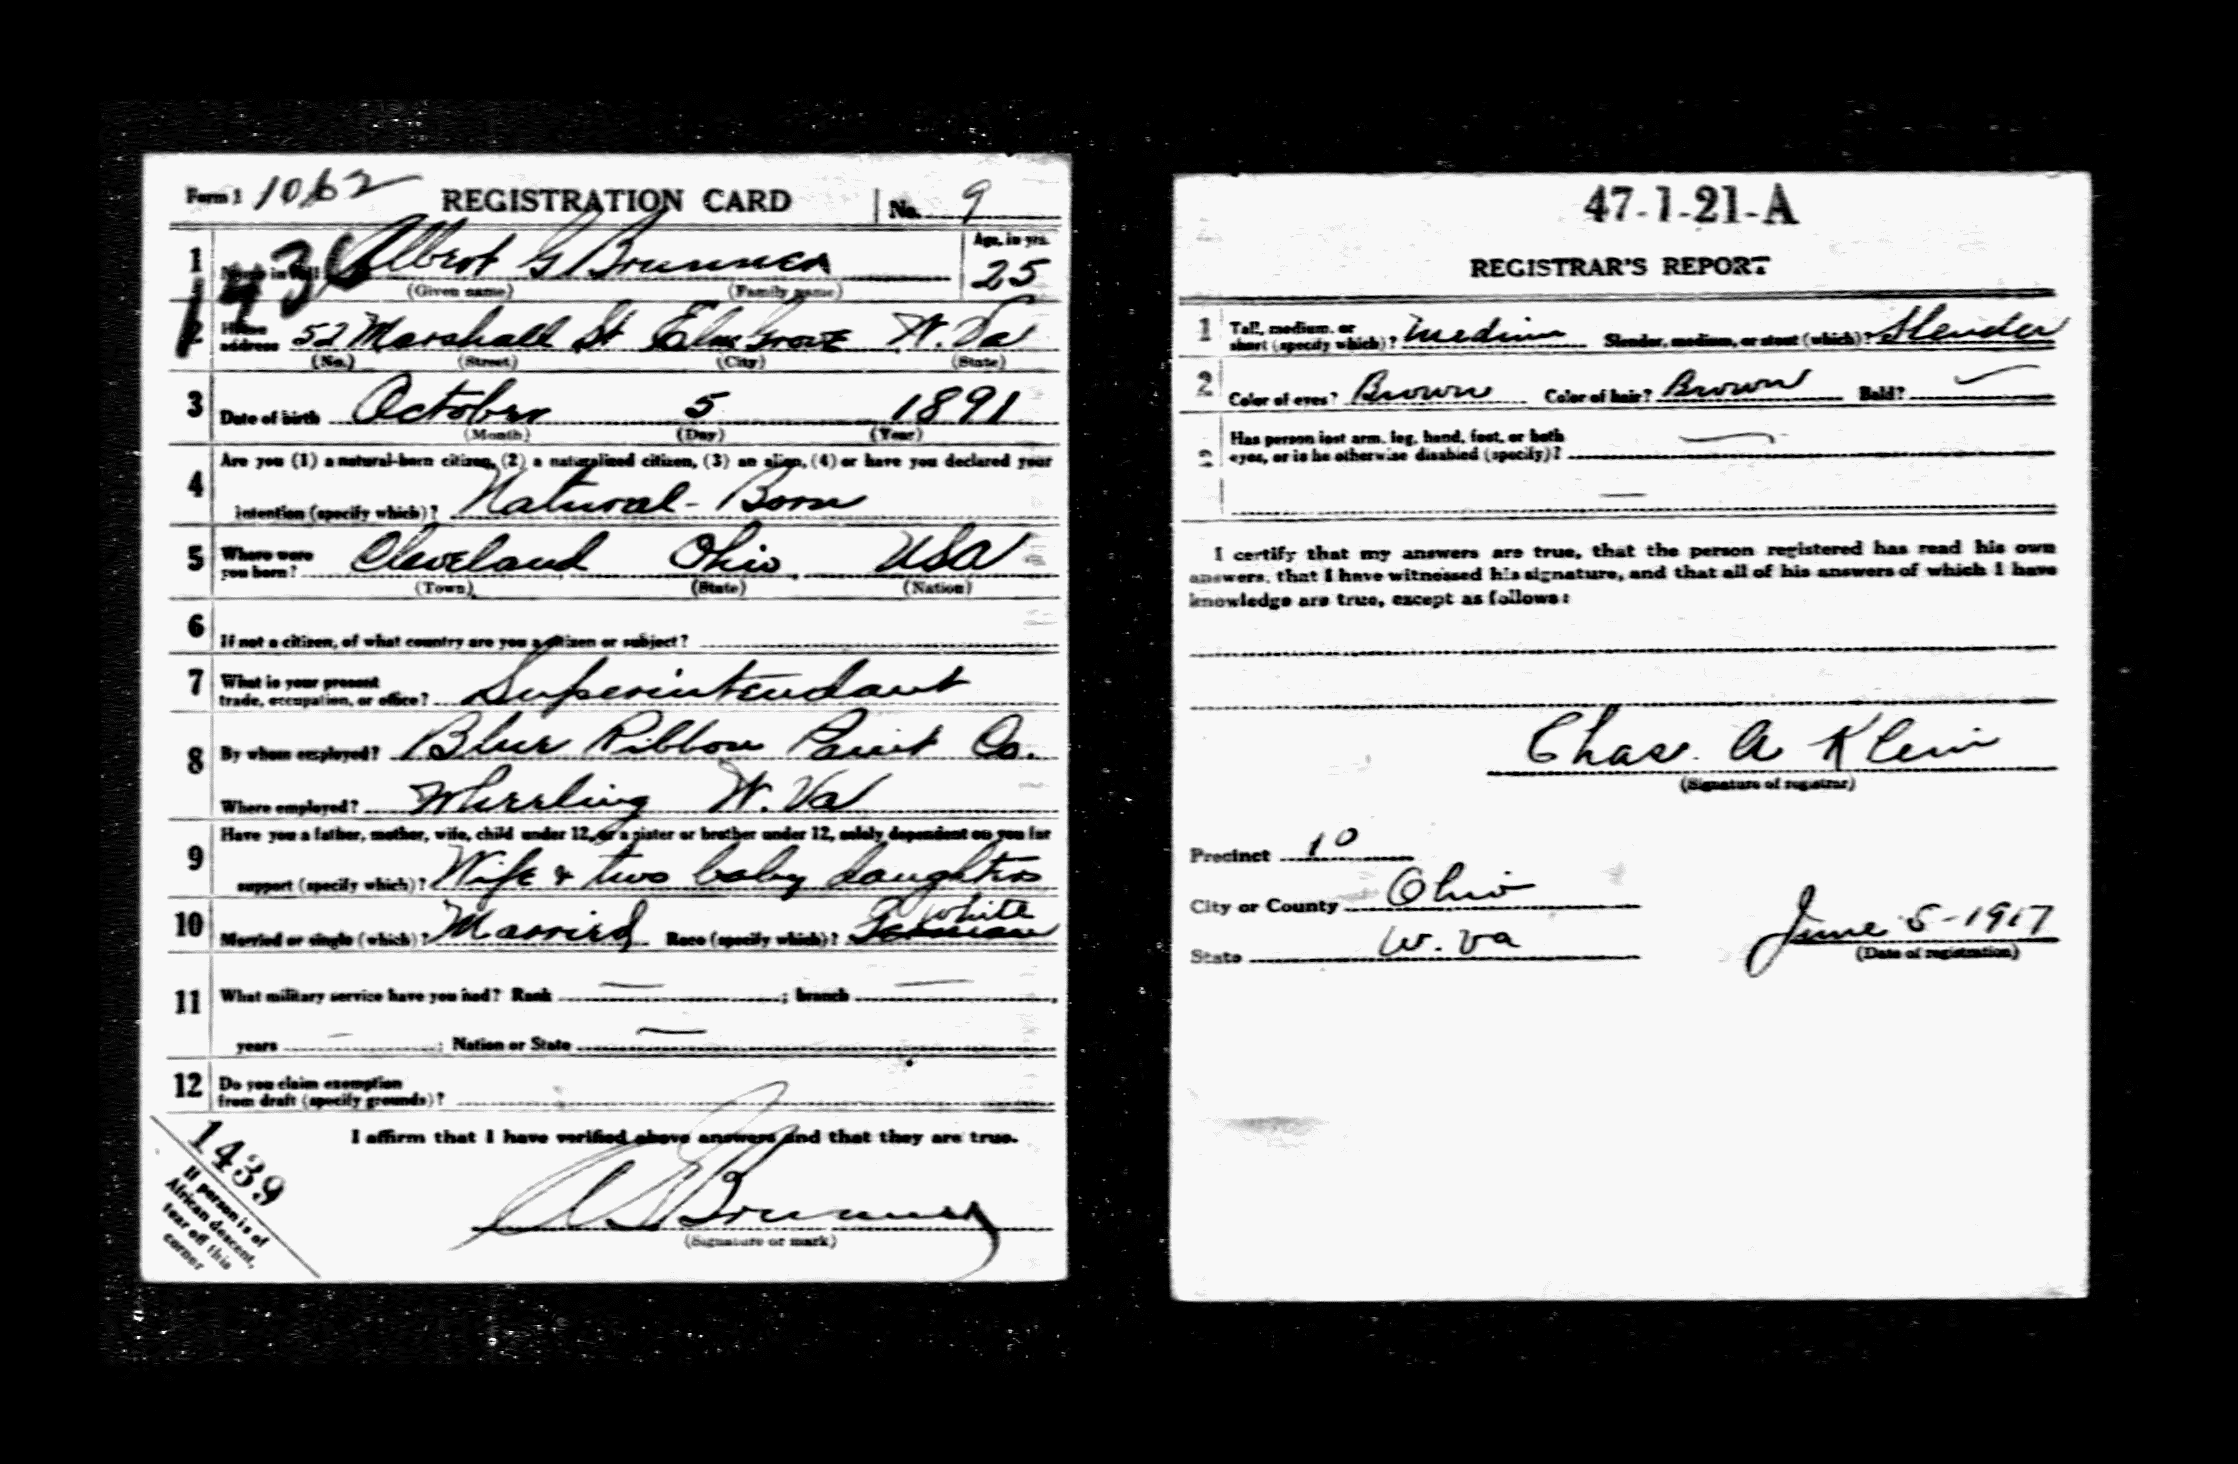 Form 1 1062 REGISTRATION CARD No. 9
1 Name in full Albert G Brunner Age, in yrs. 25
(Given name) (Family name)
1439
2 Home address 52 Marshall St Elm Grove W. Va
(No.) (Street) (City) (State)
3 Date of birth October 5 1891
(Month) (Day) (Year)
4 Are you (1) a natural-born citizen, (2) a naturalized citizen, (3) an alien, (4) or have you declared your
intention (specify which)? Natural-Born
5 Where were you born? Cleveland Ohio USA
(Town) (State) (Nation)
6 If not a citizen, of what country are you a citizen or subject?
7 What is your present trade, occupation, or office? Superintendant
8 By whom employed? Blue Ribbon Paint Co.
Where employed? Wheeling W. Va
9 Have you a father, mother, wife, child under 12, or a sister or brother under 12, solely dependent on you for
support (specify which)? Wife & two baby daughters
10 Married or single (which)? Married Race (specify which)? German White
11 What military service have you had? Rank — ; branch —
years — ; Nation or State —
12 Do you claim exemption from draft (specify grounds)?
I affirm that I have verified above answers and that they are true.
A G Brunner
(Signature or mark)
1439
If person is of
African descent,
tear off this
corner
47-1-21-A
REGISTRAR'S REPORT
1 Tall, medium, or short (specify which)? Medium Slender, medium, or stout (which)? Slender
2 Color of eyes? Brown Color of hair? Brown Bald? ✓
3 Has person lost arm, leg, hand, foot, or both
eyes, or is he otherwise disabled (specify)? —
—
I certify that my answers are true, that the person registered has read his own
answers, that I have witnessed his signature, and that all of his answers of which I have
knowledge are true, except as follows:
Chas. A Klein
(Signature of registrar)
Precinct 10
City or County Ohio
State W. Va
June 5-1917
(Date of registration)